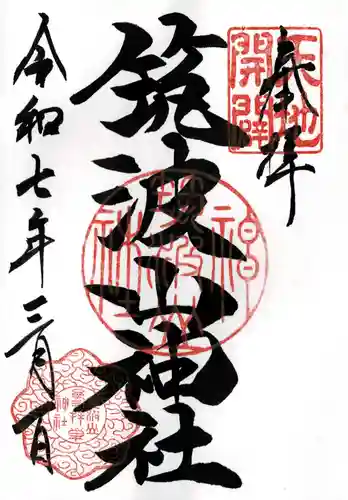 奉拝
天地
開闢
筑波山神社
令和七年三月一日
筑波山
神社